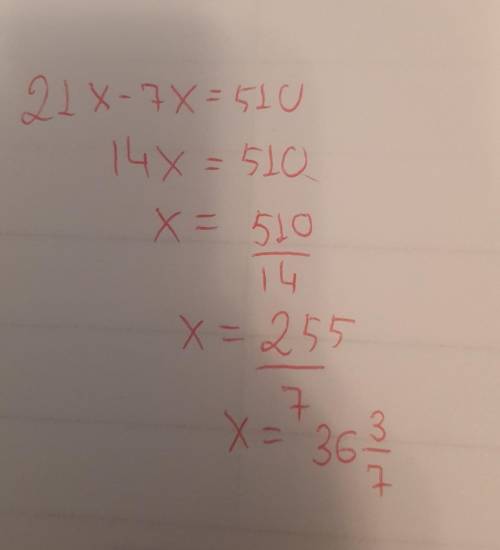 21x-7x=510
14x=510
x= 510/14
x= 255/7
x= 36 3/7